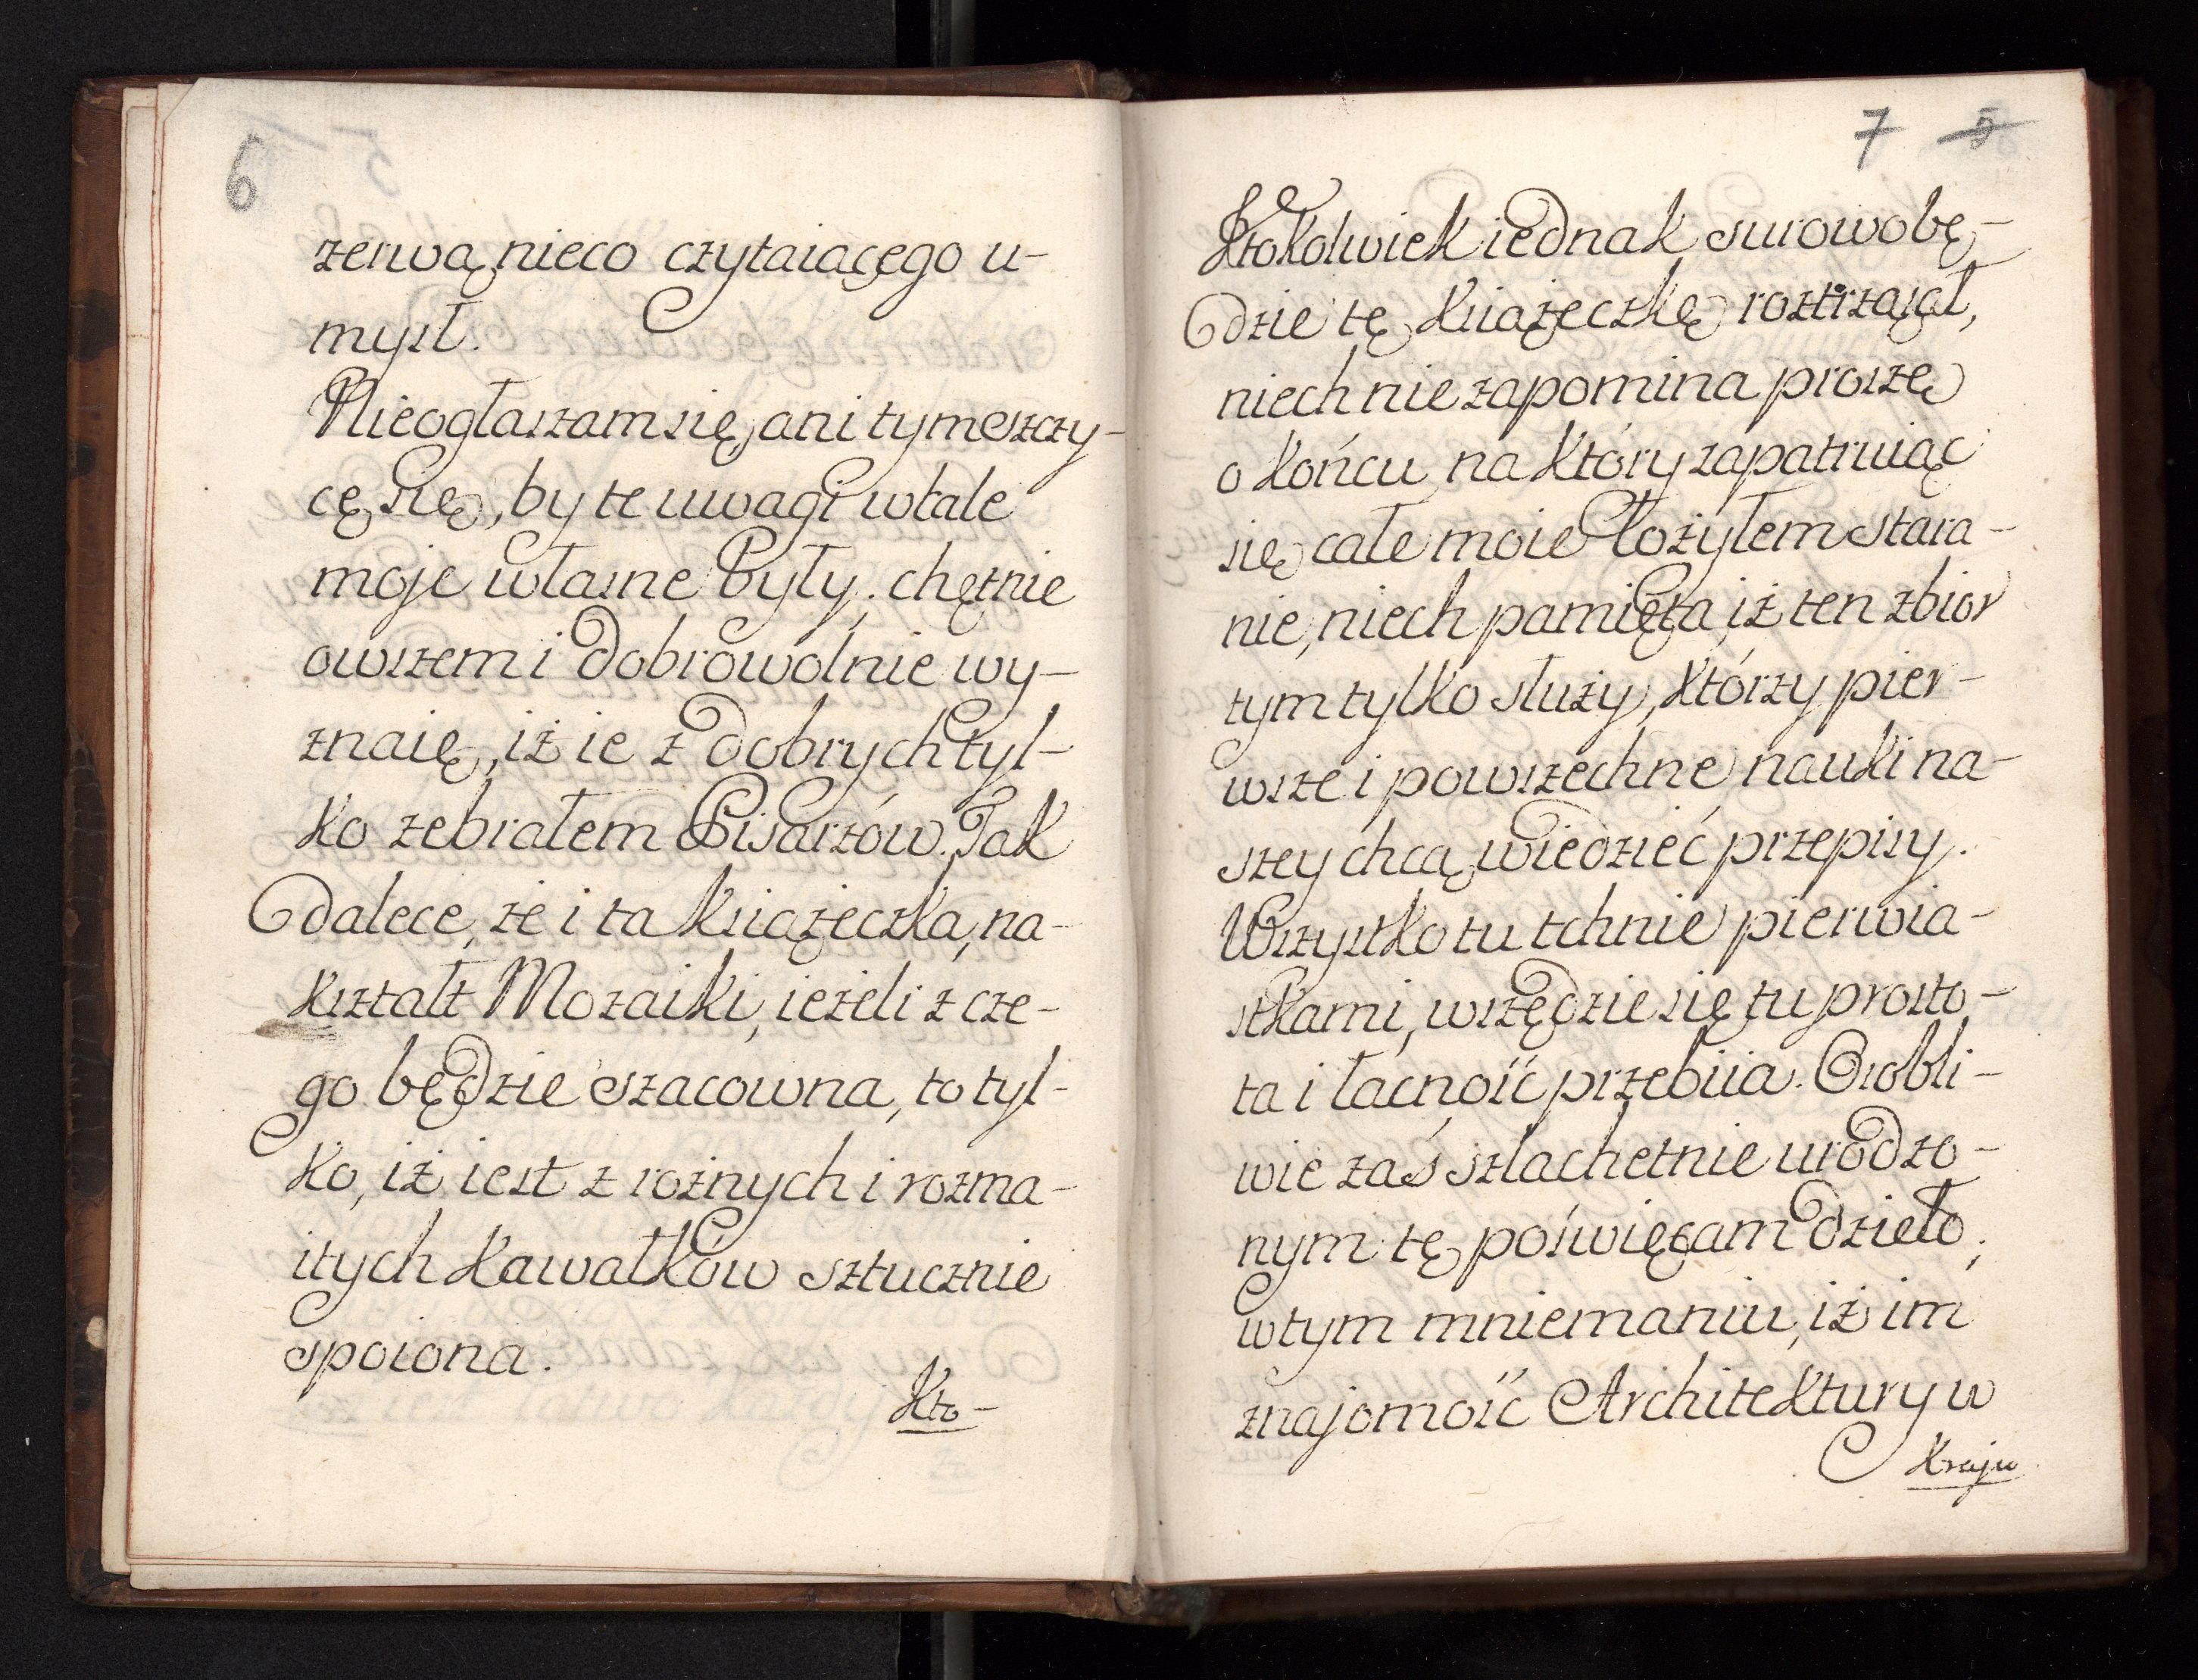 6
zerwą nieco czytaiącego u-
mysł.
Nieogłaszam się, ani tym szczy-
cę się, by te uwagi wtale
moje własne były; chętnie
owszem i dobrowolnie wy-
znaię, iż ie z dobrych tyl-
ko zebrałem Pisarzów. Jak
dalece, że i ta książeczka, na-
kształt Mozaiki, ieżeli z cze-
go będzie szacowna, to tyl-
ko, iż iest z rożnych i rozma-
itych kawałków sztucznie
spoiona.
Kto-
7 5
Ktokolwiek iednak surowo bę-
dzie tę Książeczkę roztrząsał,
niech nie zapomina proszę
o końcu na który zapatruiąc
się całe moie łożyłem stara-
nie, niech pamięta, iż ten zbior
tym tylko służy, którzy pier-
wsze i powszechne nauki na-
szey chcą wiedzieć przepisy.
Wszystko tu tchnie pierwia-
stkami, wszędzie się tu prosto-
ta i łacność przebiia. Osobli-
wie zaś szlachetnie urodzo-
nym tę poświęcam dzieło;
w tym mniemaniu, iż im
znajomość Architektury w
Kraju